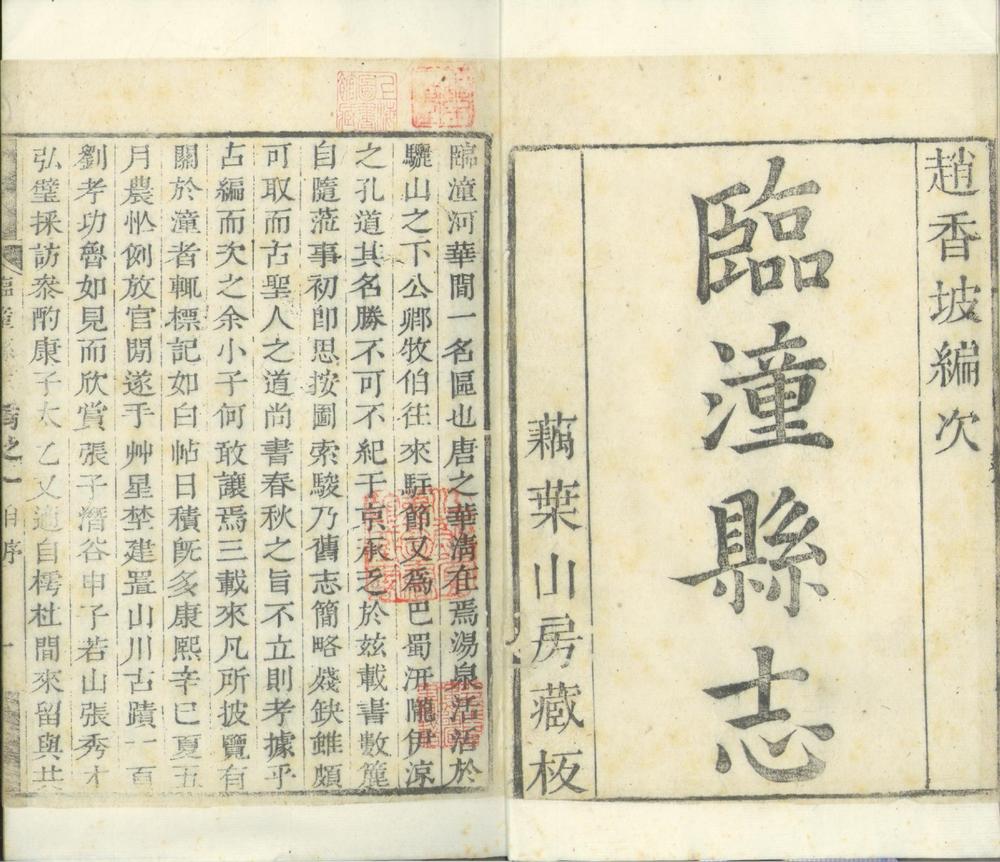 趙香坡編次
臨潼縣志
藕葉山房藏板
臨潼河華間一名區也唐之華清在焉湯泉活活於
驪山之下公卿牧伯往來駐節又為巴蜀汧隴伊涼
之孔道其名勝不可不紀于京承乏於茲載書數簏
自隨蒞事初即思按圖索駿乃舊志簡略殘缺雖頗
可取而古聖人之道尚書春秋之旨不立則考據乎
占編而次之余小子何敢讓焉三載來凡所披覽有
關於潼者輒標記如白帖日積既多康熙辛巳夏五
月農忙例放官閒遂手艸星埜建置山川古蹟一百
劉孝功魯如見而欣賞張子潛谷申子若山張秀才
弘璧採訪叅酌康子太乙又適自樗杜間來留與共
臨潼縣志
自序
一